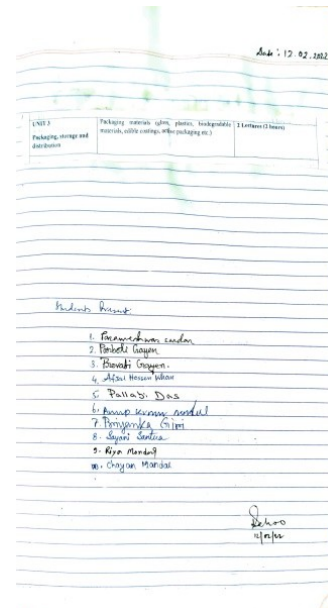 Date : 12.02.2022
UNIT 3
Packaging, storage and
distribution
Packaging materials (glass, plastics, biodegradable
materials, edible coatings, active packaging etc.)
2 Lectures (2 hours)
Students Present
1. Parameshwar
2. Parboti Gayen
3. Bravati Gayen.
4. Afsal Hossen
5. Pallabi Das
6. Anup Kumar
7. Priyanka Giri
8. Sayani Santra
9. Riya Mondal
10. Chayan Mandal
12/02/22